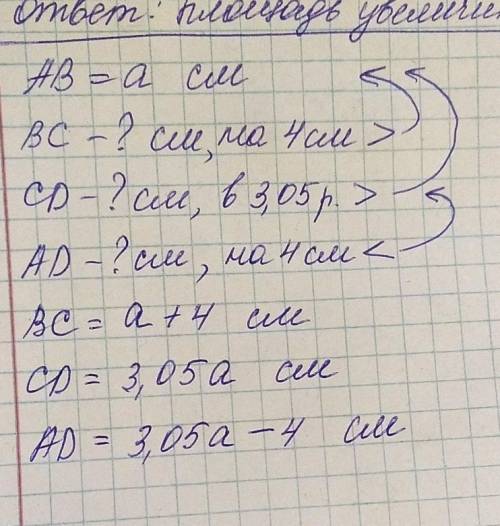 Ответ: площадь увеличи
AB = a см
BC - ? см, на 4 см >
CD - ? см, в 3,05 р. >
AD - ? см, на 4 см <
BC = a + 4 см
CD = 3,05a см
AD = 3,05a - 4 см